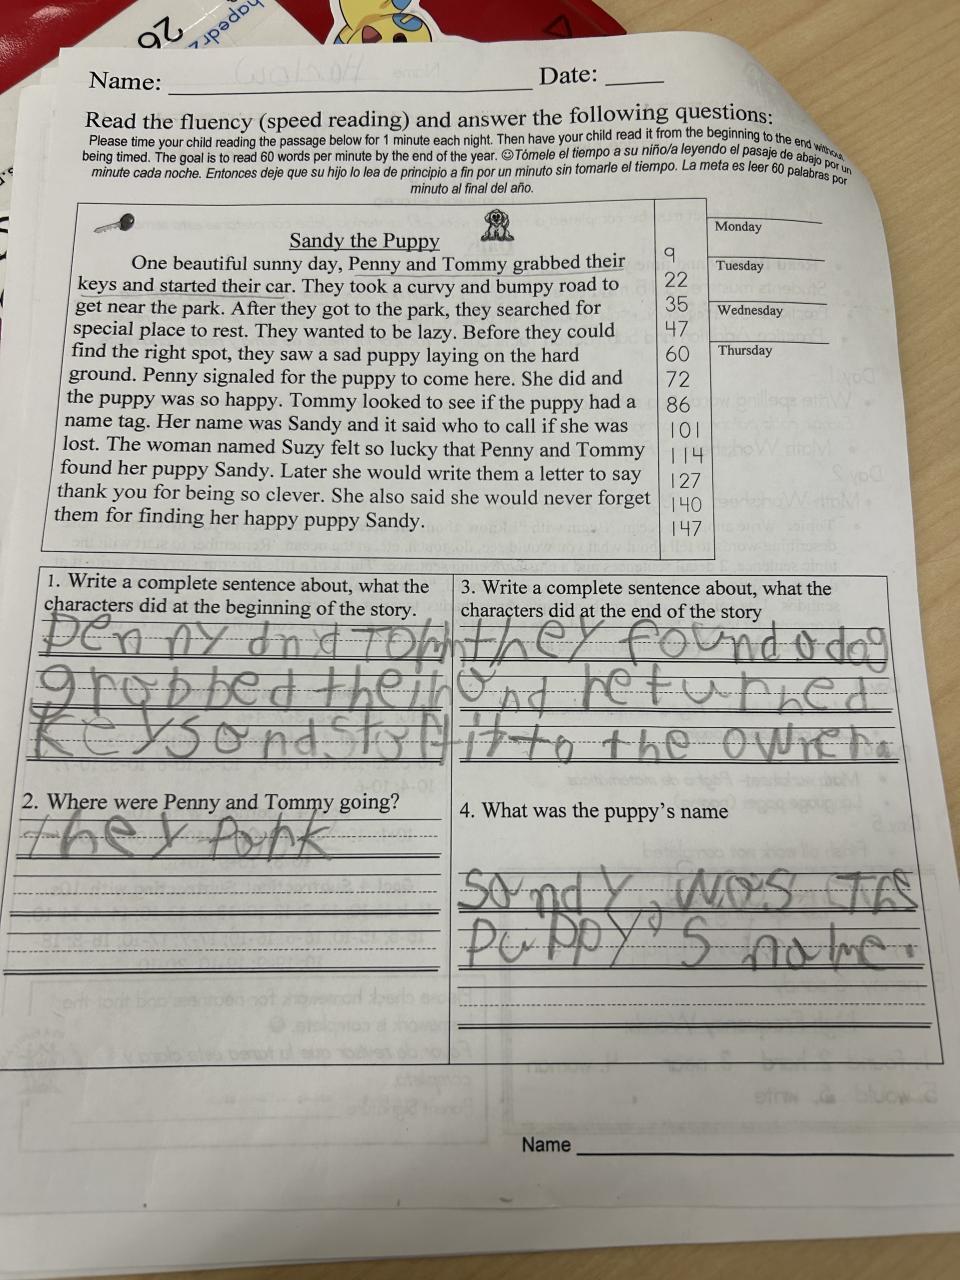 26
Name: ____________ Date: _____
Read the fluency (speed reading) and answer the following questions:
Please time your child reading the passage below for 1 minute each night. Then have your child read it from the beginning to the end without
being timed. The goal is to read 60 words per minute by the end of the year. ☺Tómele el tiempo a su niño/a leyendo el pasaje de abajo por un
minute cada noche. Entonces deje que su hijo lo lea de principio a fin por un minuto sin tomarle el tiempo. La meta es leer 60 palabras por
minuto al final del año.
Sandy the Puppy
One beautiful sunny day, Penny and Tommy grabbed their 9
keys and started their car. They took a curvy and bumpy road to 22
get near the park. After they got to the park, they searched for 35
special place to rest. They wanted to be lazy. Before they could 47
find the right spot, they saw a sad puppy laying on the hard 60
ground. Penny signaled for the puppy to come here. She did and 72
the puppy was so happy. Tommy looked to see if the puppy had a 86
name tag. Her name was Sandy and it said who to call if she was 101
lost. The woman named Suzy felt so lucky that Penny and Tommy 114
found her puppy Sandy. Later she would write them a letter to say 127
thank you for being so clever. She also said she would never forget 140
them for finding her happy puppy Sandy. 147
Monday
Tuesday
Wednesday
Thursday
1. Write a complete sentence about, what the
characters did at the beginning of the story.
Penny and
grabbed their
keys and
2. Where were Penny and Tommy going?
they park
3. Write a complete sentence about, what the
characters did at the end of the story
they found a dog
and returned
it to the owner.
4. What was the puppy's name
Sandy was the
puppy's name.
Name ____________